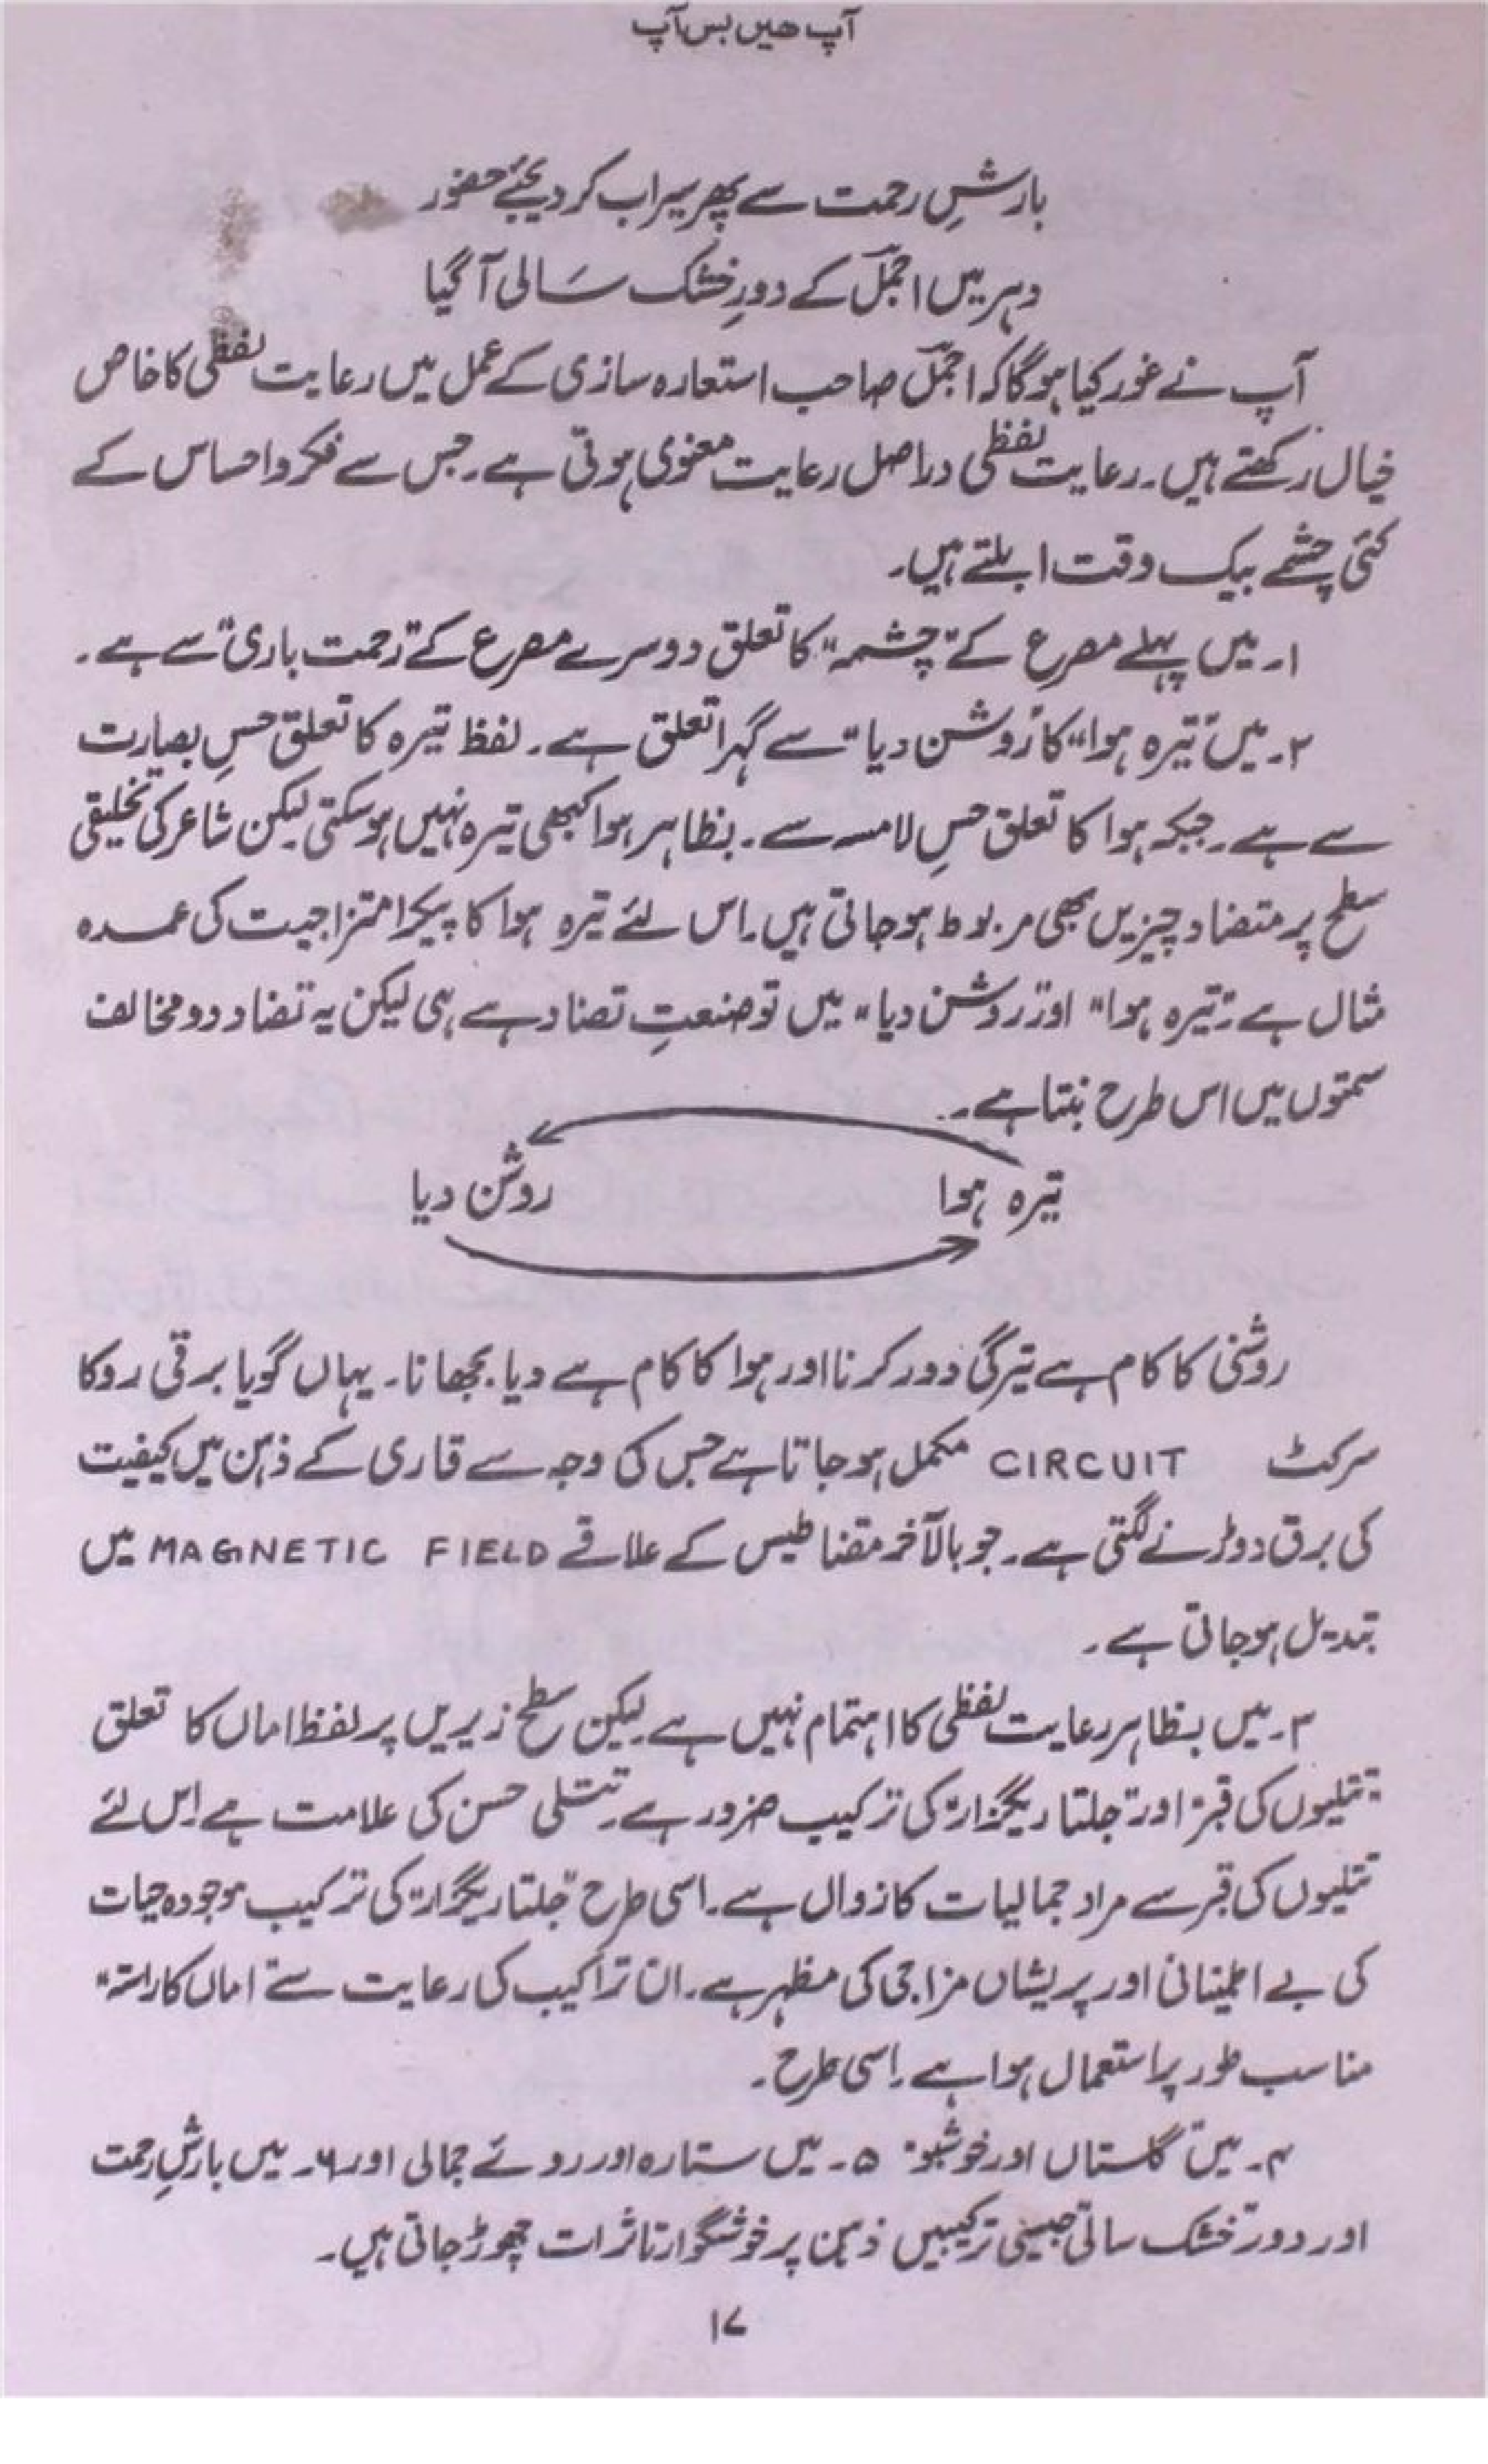 آپ ھیں بس آپ
بارشِ رحمت سے پھر سیراب کر دیجئے حضور
دہر میں اجملؔ کے دورِ خشک سَالی آ گیا
آپ نے غور کیا ہوگا کہ اجملؔ صاحب استعارہ سازی کے عمل میں رعایت لفظی کا خاص
خیال رکھتے ہیں۔ رعایت لفظی دراصل رعایت معنوی ہوتی ہے۔ جس سے فکر و احساس کے
کئی چشمے بیک وقت ابلتے ہیں۔
۱۔ میں پہلے مصرع کے "چشمہ" کا تعلق دوسرے مصرع کے "رحمت باری" سے ہے۔
۲۔ میں "تیرہ ہوا" کا "روشن دیا" سے گہرا تعلق ہے۔ لفظ تیرہ کا تعلق حسِ بصارت
سے ہے۔ جبکہ ہوا کا تعلق حسِ لامسہ سے۔ بظاہر ہوا کبھی تیرہ نہیں ہو سکتی لیکن شاعر کی تخلیقی
سطح پر متضاد چیزیں بھی مربوط ہو جاتی ہیں۔ اس لئے تیرہ ہوا کا پیکر امتزاجیت کی عمدہ
مثال ہے "تیرہ ہوا" اور "روشن دیا" میں تو صنعتِ تضاد ہے ہی لیکن یہ تضاد دو مخالف
سمتوں میں اس طرح بنتا ہے۔
تیرہ ہوا روشن دیا
روشنی کا کام ہے تیرگی دور کرنا اور ہوا کا کام ہے دیا بجھانا۔ یہاں گویا برقی رو کا
سرکٹ CIRCUIT مکمل ہو جاتا ہے جس کی وجہ سے قاری کے ذہن میں کیفیت
کی برق دوڑنے لگتی ہے۔ جو بالآخر مقناطیس کے علاقے MAGNETIC FIELD میں
تبدیل ہو جاتی ہے۔
۳۔ میں بظاہر رعایت لفظی کا اہتمام نہیں ہے لیکن سطح زیریں پر لفظ اماں کا تعلق
"تتلیوں کی قبر" اور "جلتا ریگزار" کی ترکیب ضرور ہے۔ تتلی حسن کی علامت ہے اس لئے
تتلیوں کی قبر سے مراد جمالیات کا زوال ہے۔ اسی طرح "جلتا ریگزار" کی ترکیب موجودہ حیات
کی بے اطمینانی اور پریشاں مزاجی کی مظہر ہے۔ ان تراکیب کی رعایت سے "اماں کا راستہ"
مناسب طور پر استعمال ہوا ہے۔ اسی طرح۔
۴۔ میں "گلستاں اور خوشبو" ۵۔ میں ستارہ اور روئے جمالی اور ۶۔ میں بارشِ رحمت
اور دور خشک سالی جیسی ترکیبیں ذہن پر خوشگوار تاثرات چھوڑ جاتی ہیں۔
۱۷